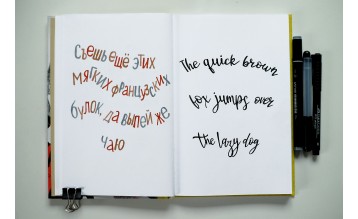 Съешь ещё этих
мягких французских
булок, да выпей же
чаю
The quick brown
fox jumps over
the lazy dog